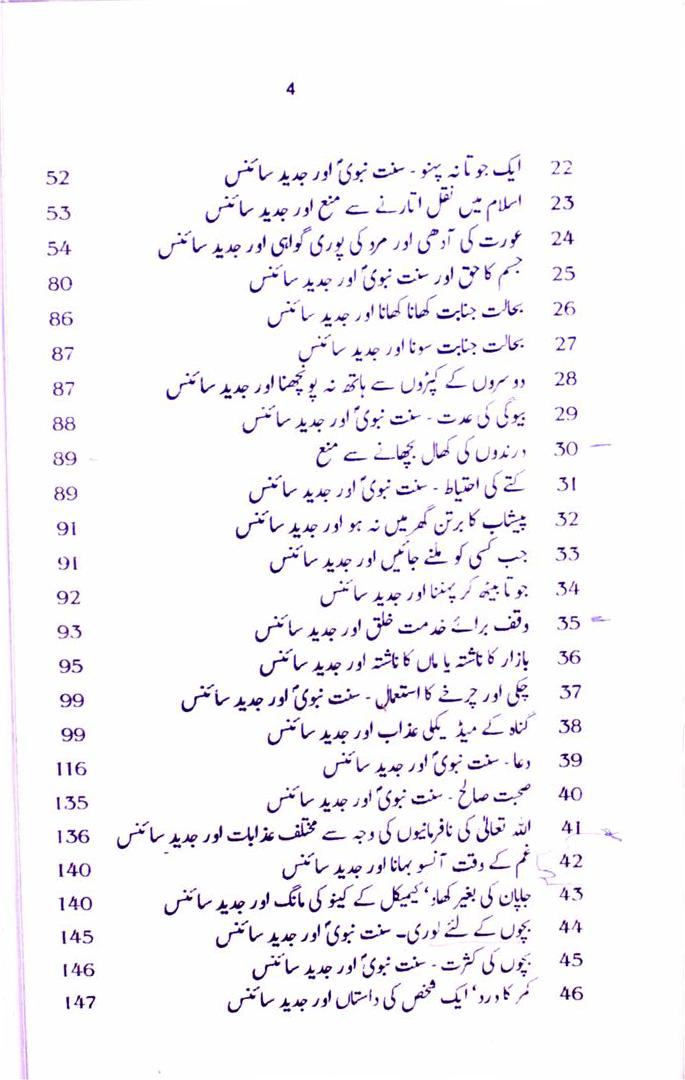 4
22 ایک جوتا نہ پہنو - سنت نبویؐ اور جدید سائنس 52
23 اسلام میں نقل اتارنے سے منع اور جدید سائنس 53
24 عورت کی آدھی اور مرد کی پوری گواہی اور جدید سائنس 54
25 جسم کا حق اور سنت نبویؐ اور جدید سائنس 80
26 بحالت جنابت کھانا کھانا اور جدید سائنس 86
27 بحالت جنابت سونا اور جدید سائنس 87
28 دوسروں کے کپڑوں سے ہاتھ نہ پونچھنا اور جدید سائنس 87
29 بیوگی کی عدت - سنت نبویؐ اور جدید سائنس 88
30 درندوں کی کھال بچھانے سے منع 89
31 کتے کی احتیاط - سنت نبویؐ اور جدید سائنس 89
32 پیشاب کا برتن گھر میں نہ ہو اور جدید سائنس 91
33 جب کسی کو ملنے جائیں اور جدید سائنس 91
34 جوتا بیٹھ کر پہننا اور جدید سائنس 92
35 وقف برائے خدمت خلق اور جدید سائنس 93
36 بازار کا ناشتہ یا ماں کا ناشتہ اور جدید سائنس 95
37 چکی اور چرخے کا استعمال - سنت نبویؐ اور جدید سائنس 99
38 گناہ کے میڈیکلی عذاب اور جدید سائنس 99
39 دعا - سنت نبویؐ اور جدید سائنس 116
40 صحبت صالح - سنت نبویؐ اور جدید سائنس 135
41 اللہ تعالیٰ کی نافرمانیوں کی وجہ سے مختلف عذابات اور جدید سائنس 136
42 غم کے وقت آنسو بہانا اور جدید سائنس 140
43 جاپان کی بغیر کھاد، کیمیکل کے کینو کی مانگ اور جدید سائنس 140
44 بچوں کے لئے لوری - سنت نبویؐ اور جدید سائنس 145
45 بچوں کی کثرت - سنت نبویؐ اور جدید سائنس 146
46 کمر کا درد، ایک شخص کی داستاں اور جدید سائنس 147